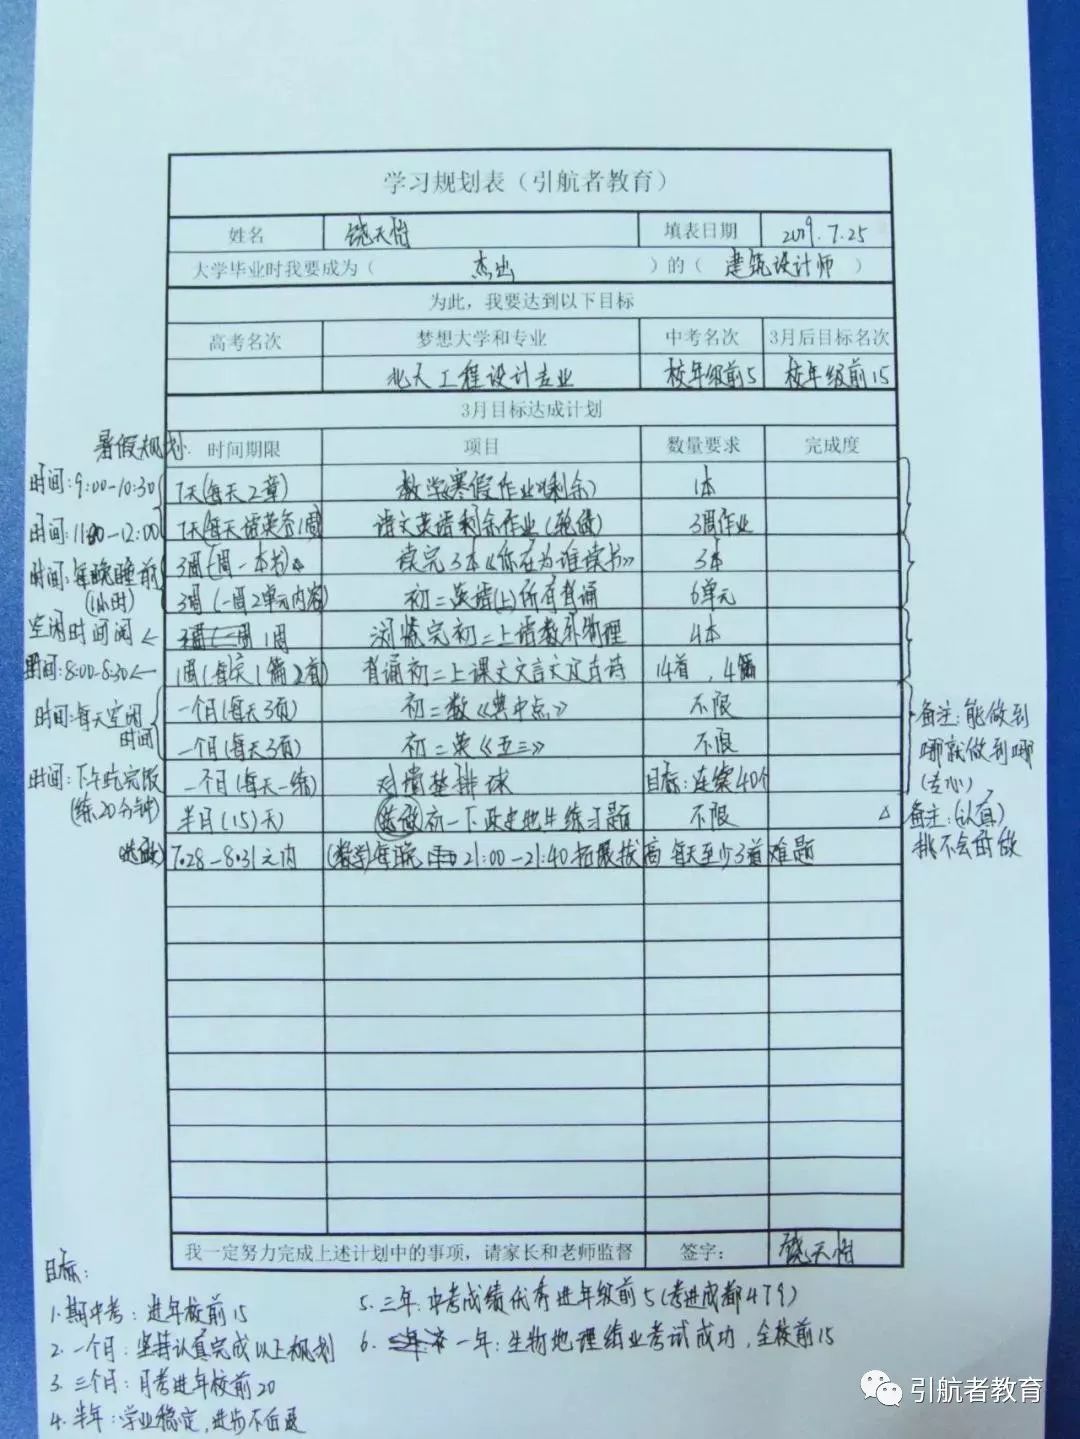 学习规划表（引航者教育）
姓名 饶天怡 填表日期 2019.7.25
大学毕业时我要成为（ 杰出 ）的（ 建筑设计师 ）
为此，我要达到以下目标
高考名次 梦想大学和专业 中考名次 3月后目标名次
北大工程设计专业 校年级前5 校年级前15
3月目标达成计划
暑假规划 时间期限 项目 数量要求 完成度
时间：9:00-10:30 7天(每天2章) 数学《寒假作业》(剩余) 1本
时间：11:00-12:00 7天(每天语英各1周) 语文英语剩余作业(轮做) 3周作业
时间：每晚睡前(1小时) 3周(一周一本书) 读完3本《你在为谁读书》 3本
3周(一周2单元内容) 初二英语(上)所有背诵 6单元
空闲时间阅← 1周 浏览完初二上语数外物理 4本
时间：8:00-8:30← 1周(每天1篇2首) 背诵初二上课文文言文及古诗 14首，4篇
时间：每天空闲时间 一个月(每天3页) 初二数《典中点》 不限
一个月(每天3页) 初二英《五三》 不限
备注：能做到哪就做到哪(专心)
时间：下午吃完饭(练20分钟) 一个月(每天一练) 对墙垫排球 目标：连续40个
半月(15)天 (选做)初一下政史地生练习题 不限 △ 备注：(认真)挑不会的做
(选做) 7.28-8.31之内 (数学)每晚21:00-21:40拓展拔高 每天至少3道难题
我一定努力完成上述计划中的事项，请家长和老师监督 签字： 饶天怡
目标：
1.期中考：进年校前15
2.一个月：坚持认真完成以上规划
3.三个月：月考进年校前20
4.半年：学业稳定，进步不后退
5.三年：中考成绩优秀进年级前5(考进成都479)
6.一年：生物地理结业考试成功，全校前15
引航者教育